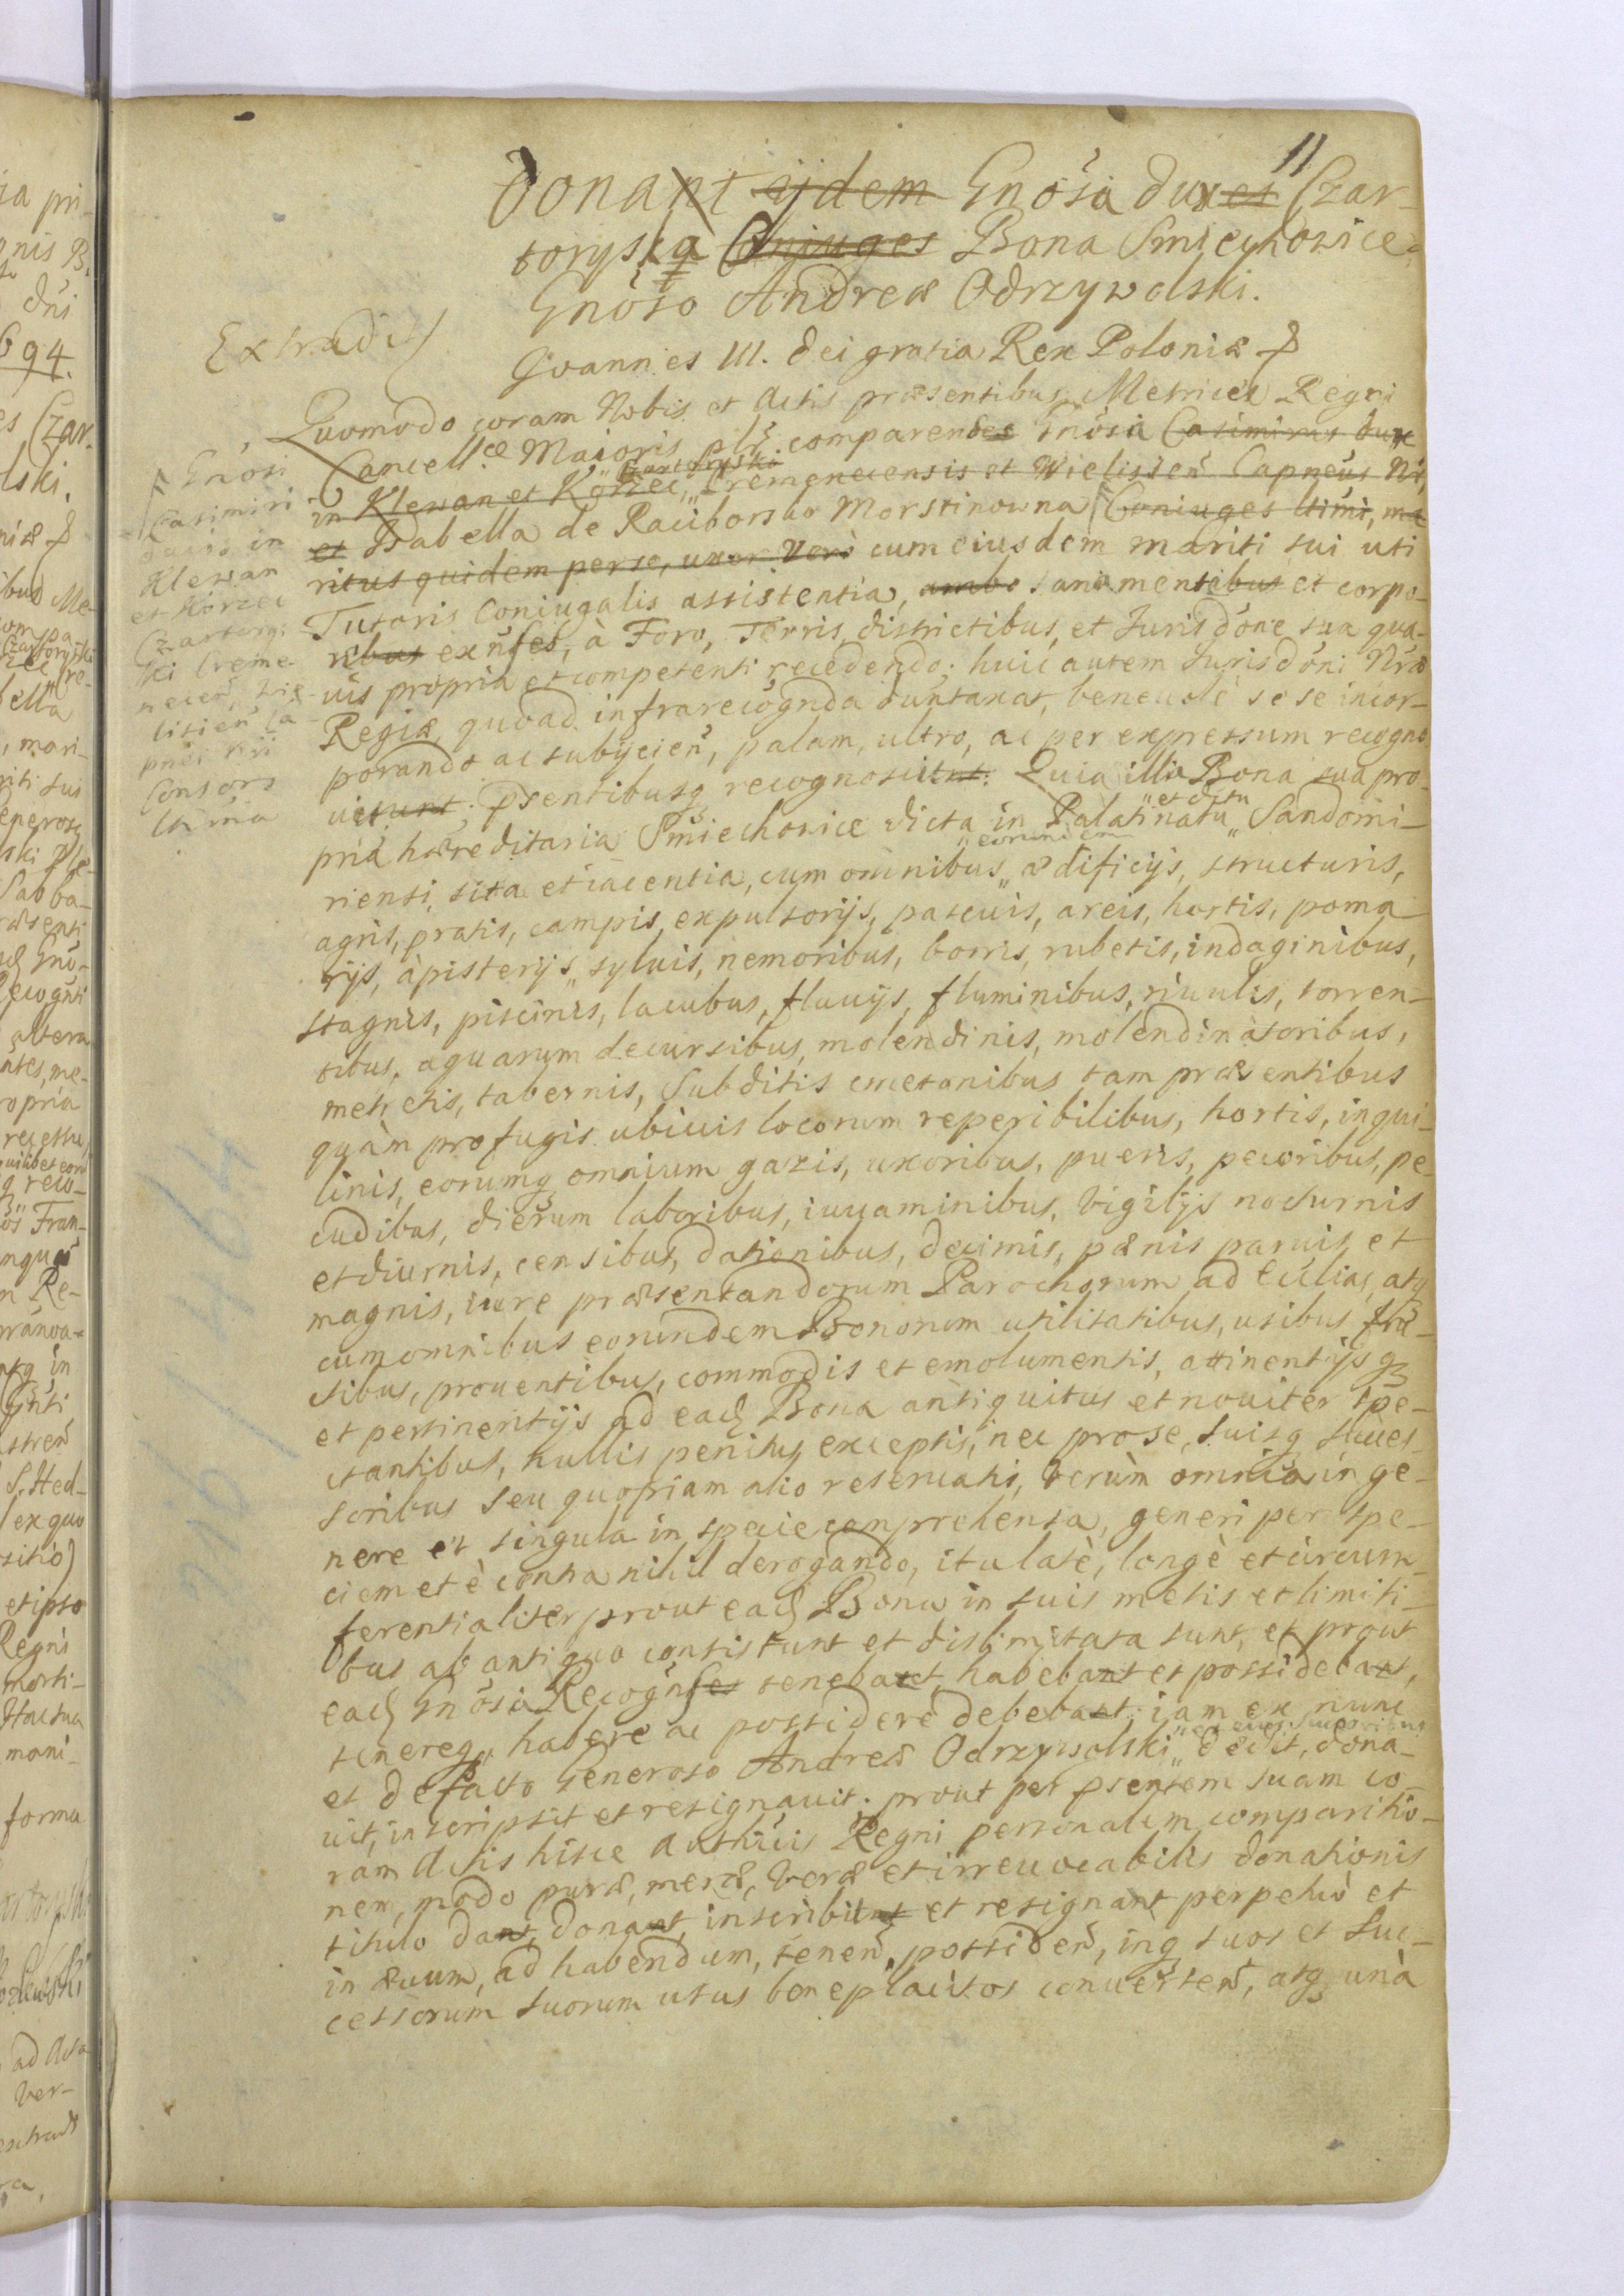 11
Donant ijdem Gnosa Duxes Czar-
toryska Coniuges Bona Smiechowice
Gnoso Andreæ Odrzywolski.
Extradit
Joannes III. Dei gratia Rex Poloniæ
Quomodo coram Nobis et Actis præsentibus Metrices Regni
Cancell.æ Maioris plr comparendes Gnosa Casimirus Dux
in Klewan et Korzec, Czartoryski Cremenecensis et Wielissen Capneus Nr,
et Isabella de Raciborsko Morstinowna Coniuges ltimi, ma
ritus quidem per se, uxor Vero cum eiusdem mariti sui uti
Tutoris Coniugalis assistentia, ambo sana mentebus et corpo-
ribus exnses, à Foro, Terris, districtibus, et Jurisdone sua qua-
uis propria et competenti recedendo: huic autem Jurisdoni Nræ
Regiæ, quoad infrarecognda duntaxat, beneuole se se incor-
porando ac subijcien, palam, ultro, ac per expressum recogno
uerunt, psentibusq recognoscitnt: Quia illa Bona sua pro-
pria hæreditaria Smiechowice dicta in Palatinatu et dictu Sandomi-
riensi, sita et iacentia, cum omnibus eorundem ædificijs, structuris,
agris, pratis, campis, expultorijs, pascuis, areis, hortis, poma
rijs, apisterijs, syluis, nemoribus, borris, rubetis, indaginibus,
stagnis, piscinis, lacubus, fluuijs, fluminibus, riuulis, torren-
tibus, aquarum decursibus, molendinis, molendinatoribus,
metretis, tabernis, Subditis cmetonibus tam præsentibus
quàm profugis ubiuis locorum reperibilibus, hortis, inqui-
linis, eorumq omnium gazis, uxoribus, pueris, pecoribus, pe-
cudibus, dierum laboribus, iuuaminibus, vigilijs nocturnis
et diurnis, censibus, dationibus, decimis, pænis paruis et
magnis, iure præsentandorum Parochorum ad Ecclias, atq
cum omnibus eorundem Bonorum utilitatibus, usibus fru-
ctibus, prouentibus, commodis et emolumentis, attinentijs q
et pertinentijs ad ead Bona antiquitus et nouiter spe-
ctantibus, nullis penitus exceptis, nec pro se, suisq succes-
soribus seu quopiam alio reseruatis, verùm omnia in ge-
nere et singula in specie comprehensa, generi per spe-
ciem et è contra nihil derogando, ita latè, longè et circum-
ferentialiter prout ead Bona in suis metis et limiti-
bus ab antiquo consistunt et dislimitata sunt, et prout
ead Gnosa Recognses tenebant, habebant et possidebant,
tenereq, habere ac possidere debebant: iam ex nunc
et de facto Generoso Andreæ Odrzywolski et eius Successoribus dedit, dona-
uit, inscripsit et resignauit: prout per psentem suam co-
ram Actis hisce Authcis Regni personalem comparitio-
nem, modo puræ, meræ, veræ et irreuocabilis donationis
titulo dant, donant, inscribitnt et resignant perpetuò et
in æuum, ad habendum, tenen, possiden, inq suos et suc-
cessorum suorum usus beneplacitos conuerten, atq unà
Gnosi
Casimiri
Ducis in
Klewan
et Korzec
Czartorys
ki Creme-
necen, Wie-
lisien Ca-
pnei Nri
Consors
ltima